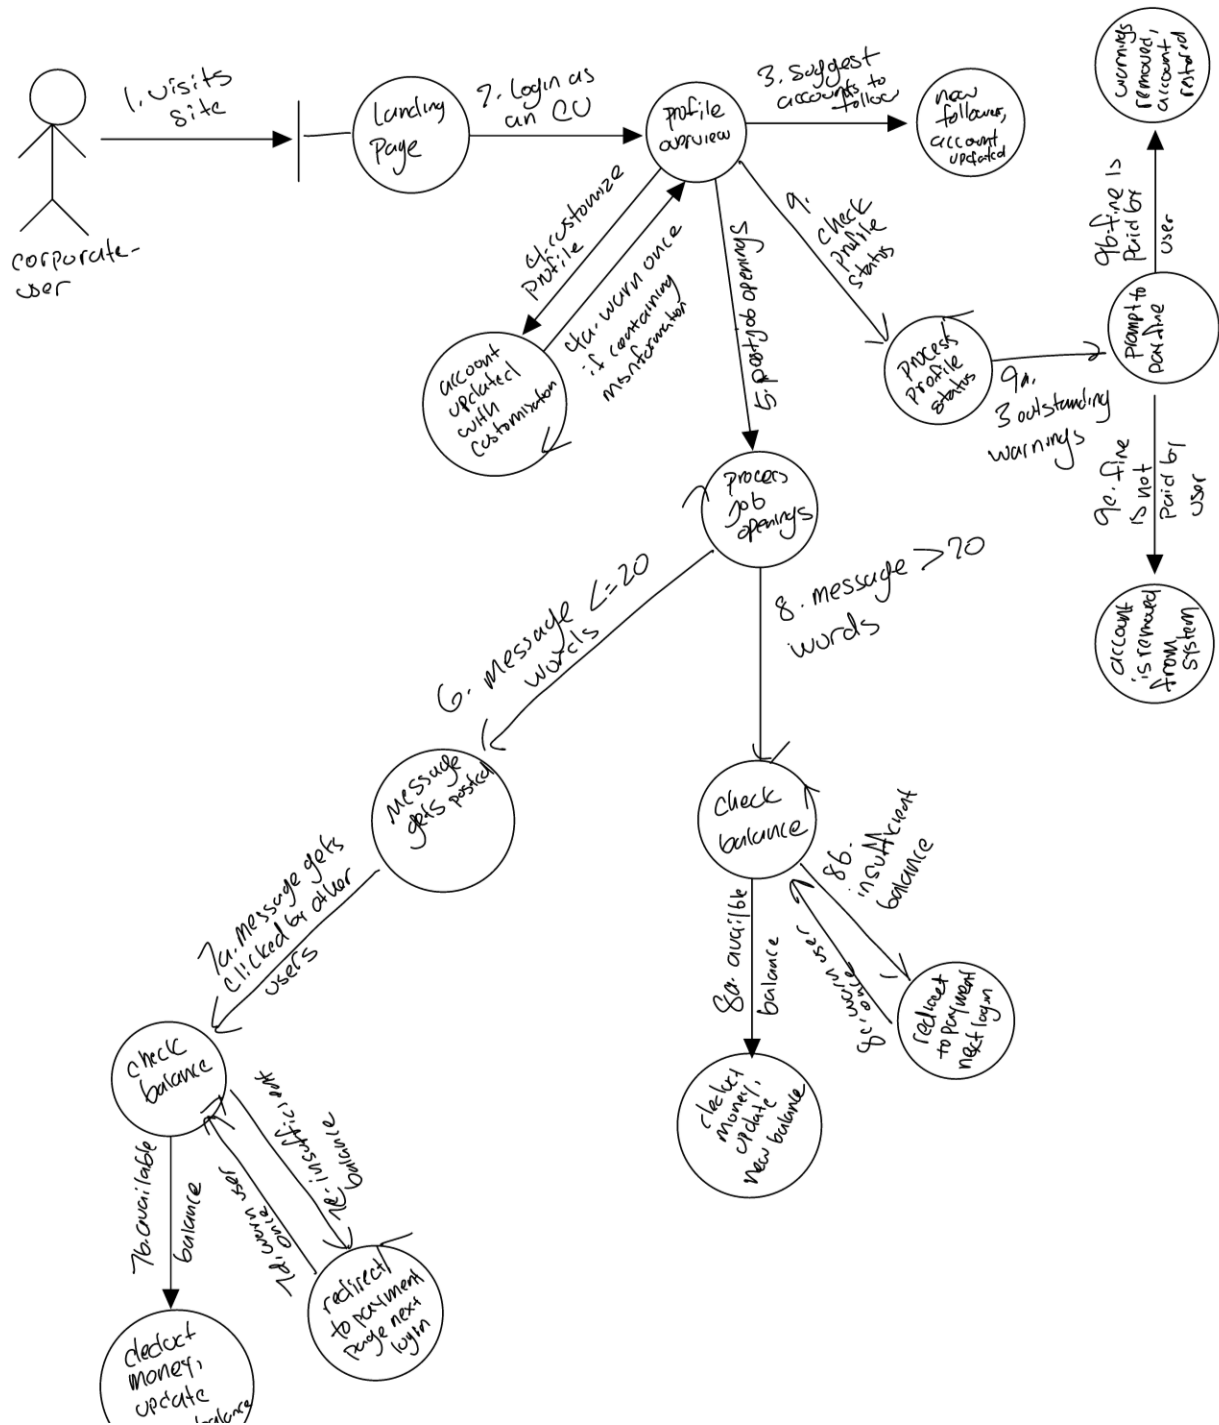 1. visits
site
corporate-
user
Landing
Page
2. Login as
an CU
profile
overview
3. Suggest
accounts to
follow
new
follower,
account
updated
4. customize
profile
4a. warn once
if containing
misinformation
account
updated
with
customization
5. post job openings
9.
check
profile
status
process
profile
status
9a.
3 outstanding
warnings
prompt to
pay fine
9b. fine is
paid by
user
warnings
removed,
account
restored
9c. fine
is not
paid by
user
account
is removed
from
system
process
job
openings
6. message <=20
words
8. message >20
words
message
gets posted
check
balance
8a. available
balance
8b.
insufficient
balance
8c. warn user
once
redirect
to payment
next login
deduct
money,
update
new balance
7a. message gets
clicked by other
users
check
balance
7b. available
balance
7c. insufficient
balance
7d. warn user
once
redirect
to payment
page next
login
deduct
money,
update
balance